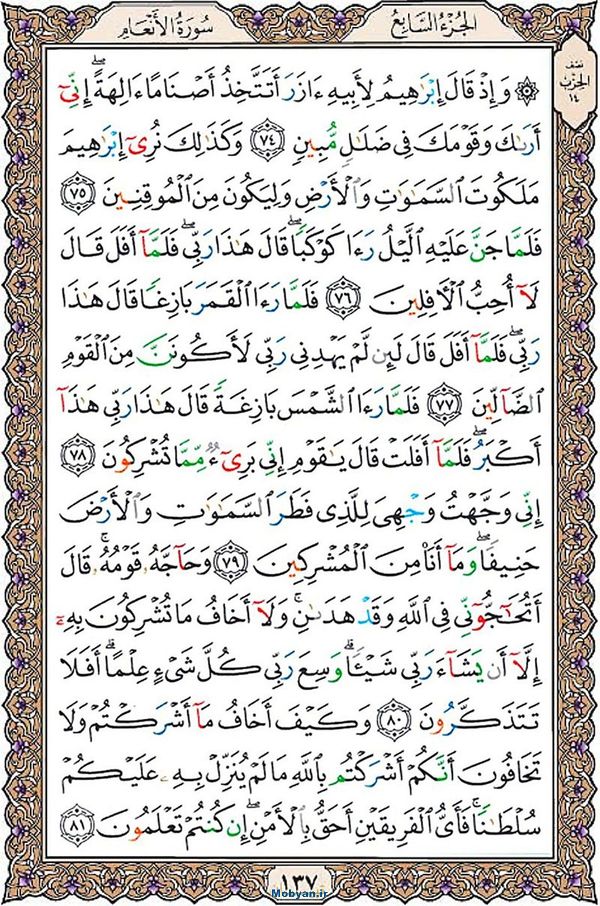 الجُزءُ السَّابِعُ
سُورَةُ الأَنعَامِ
نصف
الحزب
١٤
۞ وَإِذْ قَالَ إِبْرَٰهِيمُ لِأَبِيهِ ءَازَرَ أَتَتَّخِذُ أَصْنَامًا ءَالِهَةً ۖ إِنِّىٓ
أَرَىٰكَ وَقَوْمَكَ فِى ضَلَـٰلٍ مُّبِينٍ ٧٤ وَكَذَٰلِكَ نُرِىٓ إِبْرَٰهِيمَ
مَلَكُوتَ ٱلسَّمَـٰوَٰتِ وَٱلْأَرْضِ وَلِيَكُونَ مِنَ ٱلْمُوقِنِينَ ٧٥
فَلَمَّا جَنَّ عَلَيْهِ ٱلَّيْلُ رَءَا كَوْكَبًا ۖ قَالَ هَـٰذَا رَبِّى ۖ فَلَمَّآ أَفَلَ قَالَ
لَآ أُحِبُّ ٱلْـَٔافِلِينَ ٧٦ فَلَمَّا رَءَا ٱلْقَمَرَ بَازِغًا قَالَ هَـٰذَا
رَبِّى ۖ فَلَمَّآ أَفَلَ قَالَ لَئِن لَّمْ يَهْدِنِى رَبِّى لَأَكُونَنَّ مِنَ ٱلْقَوْمِ
ٱلضَّآلِّينَ ٧٧ فَلَمَّا رَءَا ٱلشَّمْسَ بَازِغَةً قَالَ هَـٰذَا رَبِّى هَـٰذَآ
أَكْبَرُ ۖ فَلَمَّآ أَفَلَتْ قَالَ يَـٰقَوْمِ إِنِّى بَرِىٓءٌ مِّمَّا تُشْرِكُونَ ٧٨
إِنِّى وَجَّهْتُ وَجْهِىَ لِلَّذِى فَطَرَ ٱلسَّمَـٰوَٰتِ وَٱلْأَرْضَ
حَنِيفًا ۖ وَمَآ أَنَا۠ مِنَ ٱلْمُشْرِكِينَ ٧٩ وَحَآجَّهُۥ قَوْمُهُۥ ۚ قَالَ
أَتُحَـٰٓجُّوٓنِّى فِى ٱللَّهِ وَقَدْ هَدَىٰنِ ۚ وَلَآ أَخَافُ مَا تُشْرِكُونَ بِهِۦٓ
إِلَّآ أَن يَشَآءَ رَبِّى شَيْـًٔا ۗ وَسِعَ رَبِّى كُلَّ شَىْءٍ عِلْمًا ۗ أَفَلَا
تَتَذَكَّرُونَ ٨٠ وَكَيْفَ أَخَافُ مَآ أَشْرَكْتُمْ وَلَا
تَخَافُونَ أَنَّكُمْ أَشْرَكْتُم بِٱللَّهِ مَا لَمْ يُنَزِّلْ بِهِۦ عَلَيْكُمْ
سُلْطَـٰنًا ۚ فَأَىُّ ٱلْفَرِيقَيْنِ أَحَقُّ بِٱلْأَمْنِ ۖ إِن كُنتُمْ تَعْلَمُونَ ٨١
١٣٧
Mobyan.ir